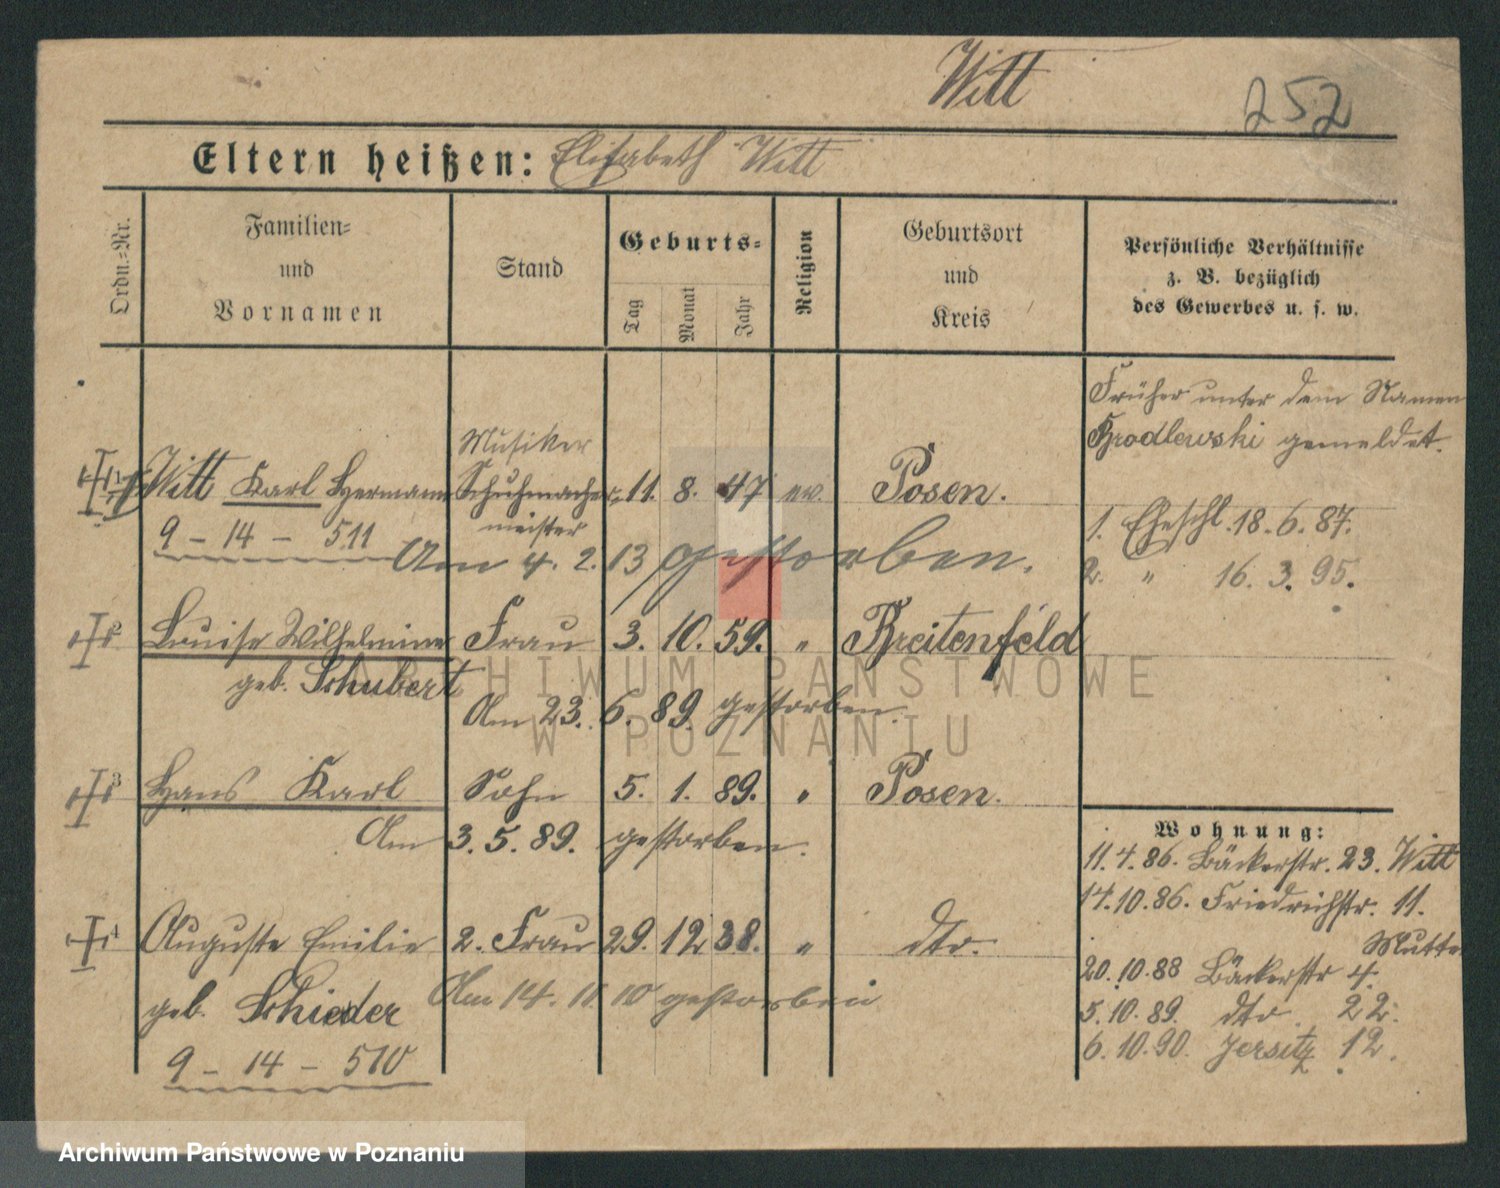 Witt
252
Eltern heißen: Elisabeth Witt
Ordn.-Nr.
Familien-
und
Vornamen
Stand
Geburts-
Tag
Monat
Jahr
Religion
Geburtsort
und
Kreis
Persönliche Verhältnisse
z. B. bezüglich
des Gewerbes u. s. w.
Früher unter dem Namen
Brodlewski gemeldet.
Musiker
1 Witt Karl Hermann Schuhmacher- 11. 8. 47 ev. Posen.
meister
9 - 14 - 511
Am 4. 2. 13 gestorben.
1. Eheschl. 18. 6. 87.
2. " 16. 3. 95.
2 Louise Wilhelmine Frau 3. 10. 59. " Breitenfeld
geb. Schubert
Am 23. 6. 89. gestorben.
3 Hans Karl Sohn 5. 1. 89. " Posen.
Am 3. 5. 89. gestorben.
4 Auguste Emilie 2. Frau 29. 12 38. " dto.
geb. Schieder
Am 14. 11. 10 gestorben
9 - 14 - 510
Wohnung:
11. 4. 86. Bäckerstr. 23. Witt
14. 10. 86. Friedrichstr. 11.
Mutter
20. 10. 88 Bäckerstr 4.
5. 10. 89. dto. 22.
6. 10. 90. Jersitz 12.
ARCHIWUM PAŃSTWOWE
W POZNANIU
Archiwum Państwowe w Poznaniu